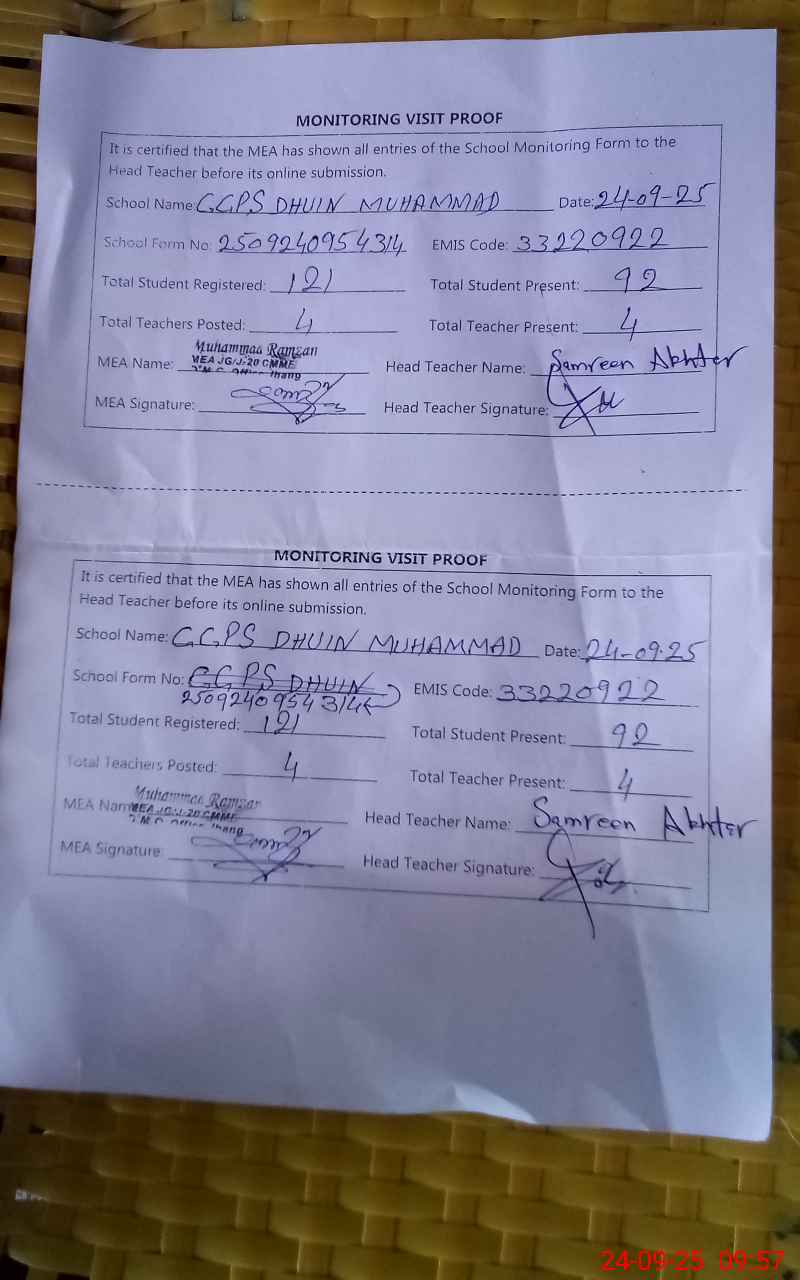 MONITORING VISIT PROOF
It is certified that the MEA has shown all entries of the School Monitoring Form to the
Head Teacher before its online submission.
School Name: GGPS DHUIN MUHAMMAD Date: 24-09-25
School Form No: 2509240954314 EMIS Code: 33220922
Total Student Registered: 121 Total Student Present: 92
Total Teachers Posted: 4 Total Teacher Present: 4
Muhammad Ramzan
MEA JG/J-20 CMME
MEA Name: Jhang Head Teacher Name: Samreen Akhter
MEA Signature: Head Teacher Signature:
MONITORING VISIT PROOF
It is certified that the MEA has shown all entries of the School Monitoring Form to the
Head Teacher before its online submission.
School Name: GGPS DHUIN MUHAMMAD Date: 24-09-25
School Form No: GGPS DHUIN EMIS Code: 33220922
2509240954314
Total Student Registered: 121 Total Student Present: 92
Total Teachers Posted: 4 Total Teacher Present: 4
Muhammad Ramzan
MEA Name: MEA JG/J-20 CMME Head Teacher Name: Samreen Akhter
Jhang
MEA Signature: Head Teacher Signature:
24-09-25 09:57